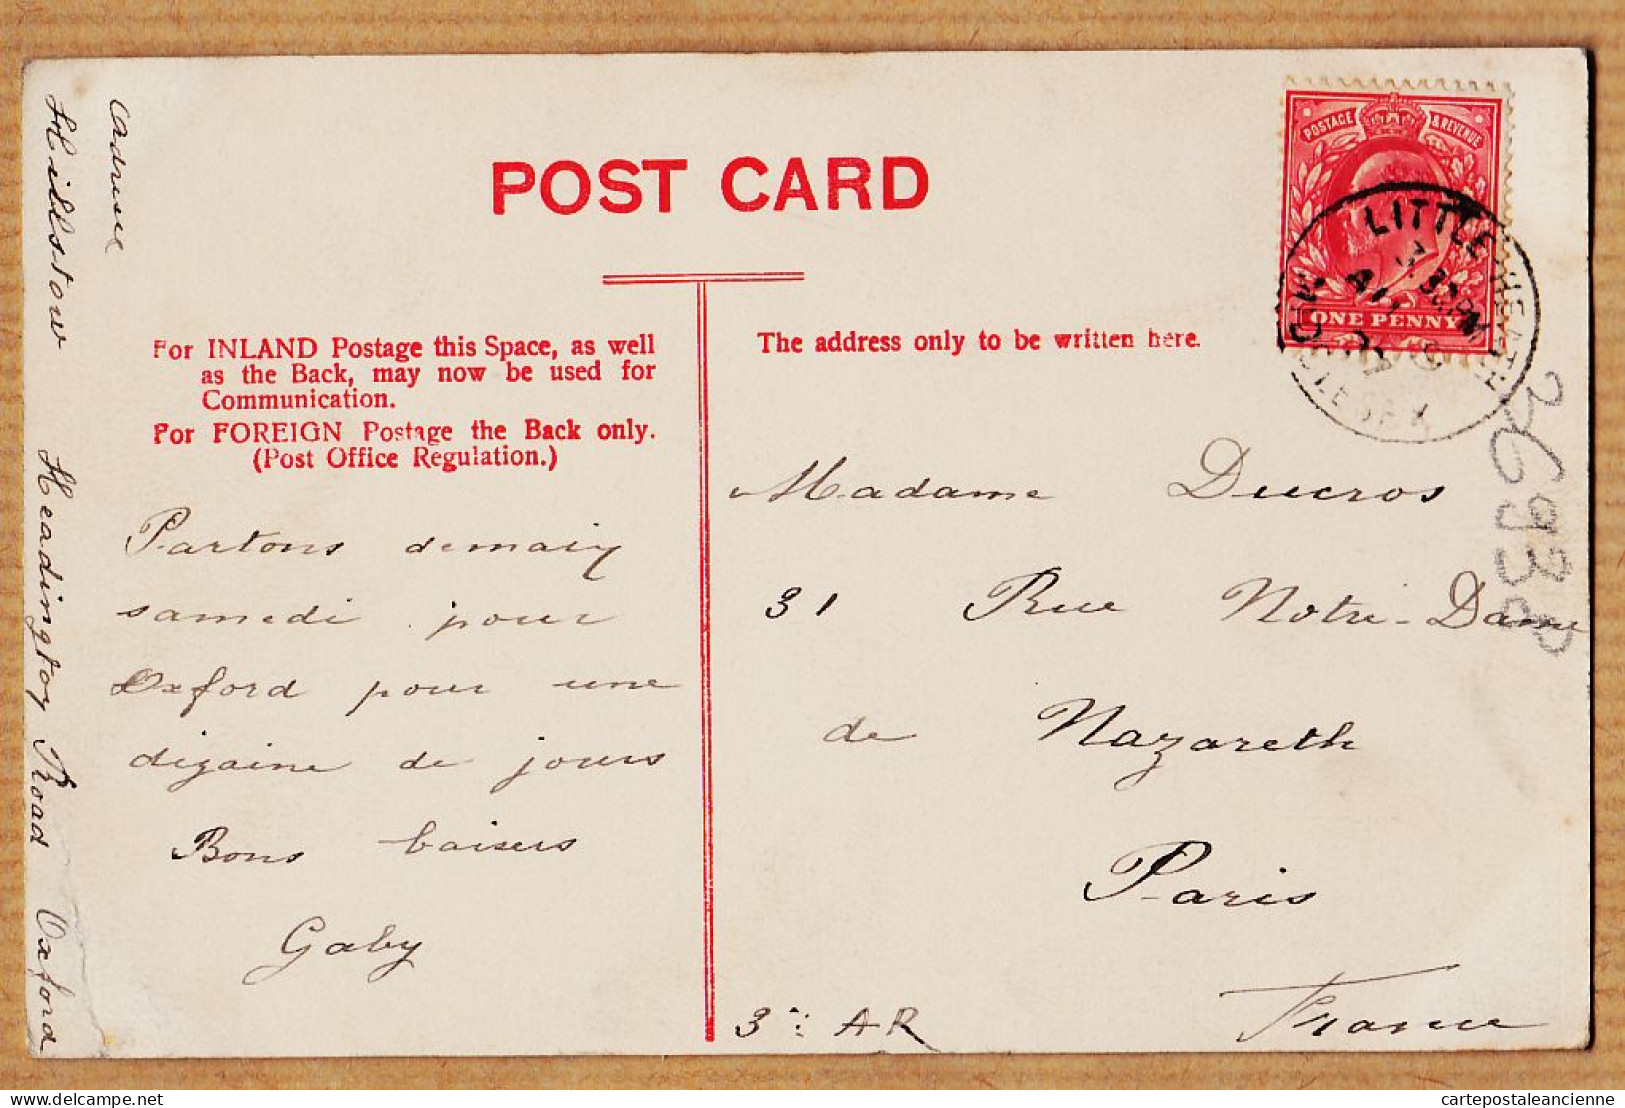 POST CARD
For INLAND Postage this Space, as well
as the Back, may now be used for
Communication.
For FOREIGN Postage the Back only.
(Post Office Regulation.)
The address only to be written here.
POSTAGE & REVENUE
ONE PENNY
LITTLE HEATH
MIDDLESEX
Partons demain
samedi pour
Oxford pour une
dizaine de jours
Bons baisers
Gaby
adresse
Hillstow Headington Road Oxford
Madame Ducros
31 Rue Notre-Dame
de Nazareth
Paris
France
3e: AR
delcampe.net
cartepostaleancienne